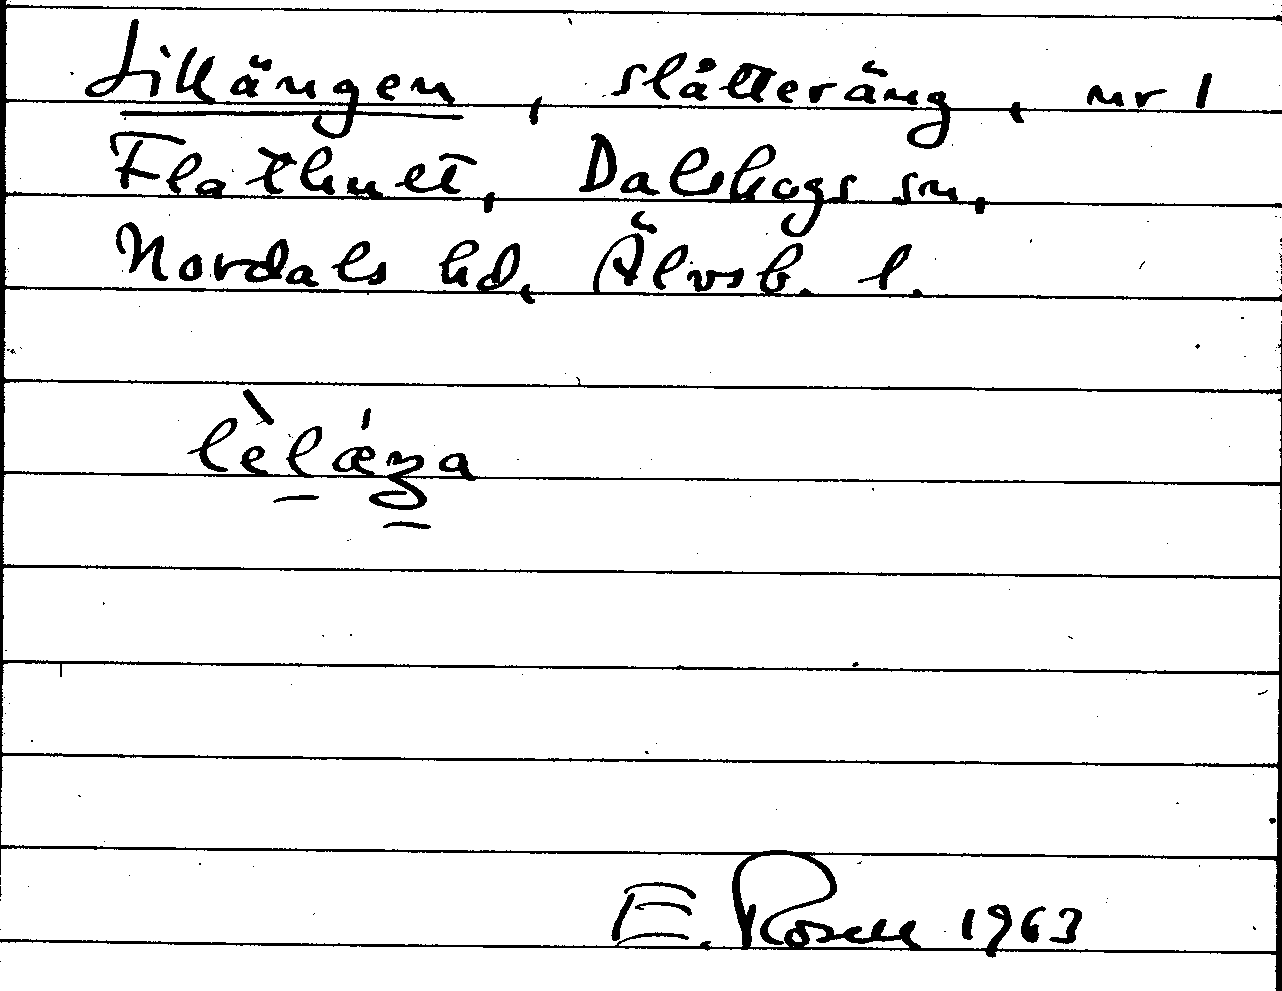 Lillängen, slåtteräng, nr 1
Flathult, Dalskogs sn,
Nordals hd, Älvsb. l.
lèlǽŋa
E. Rosell 1963